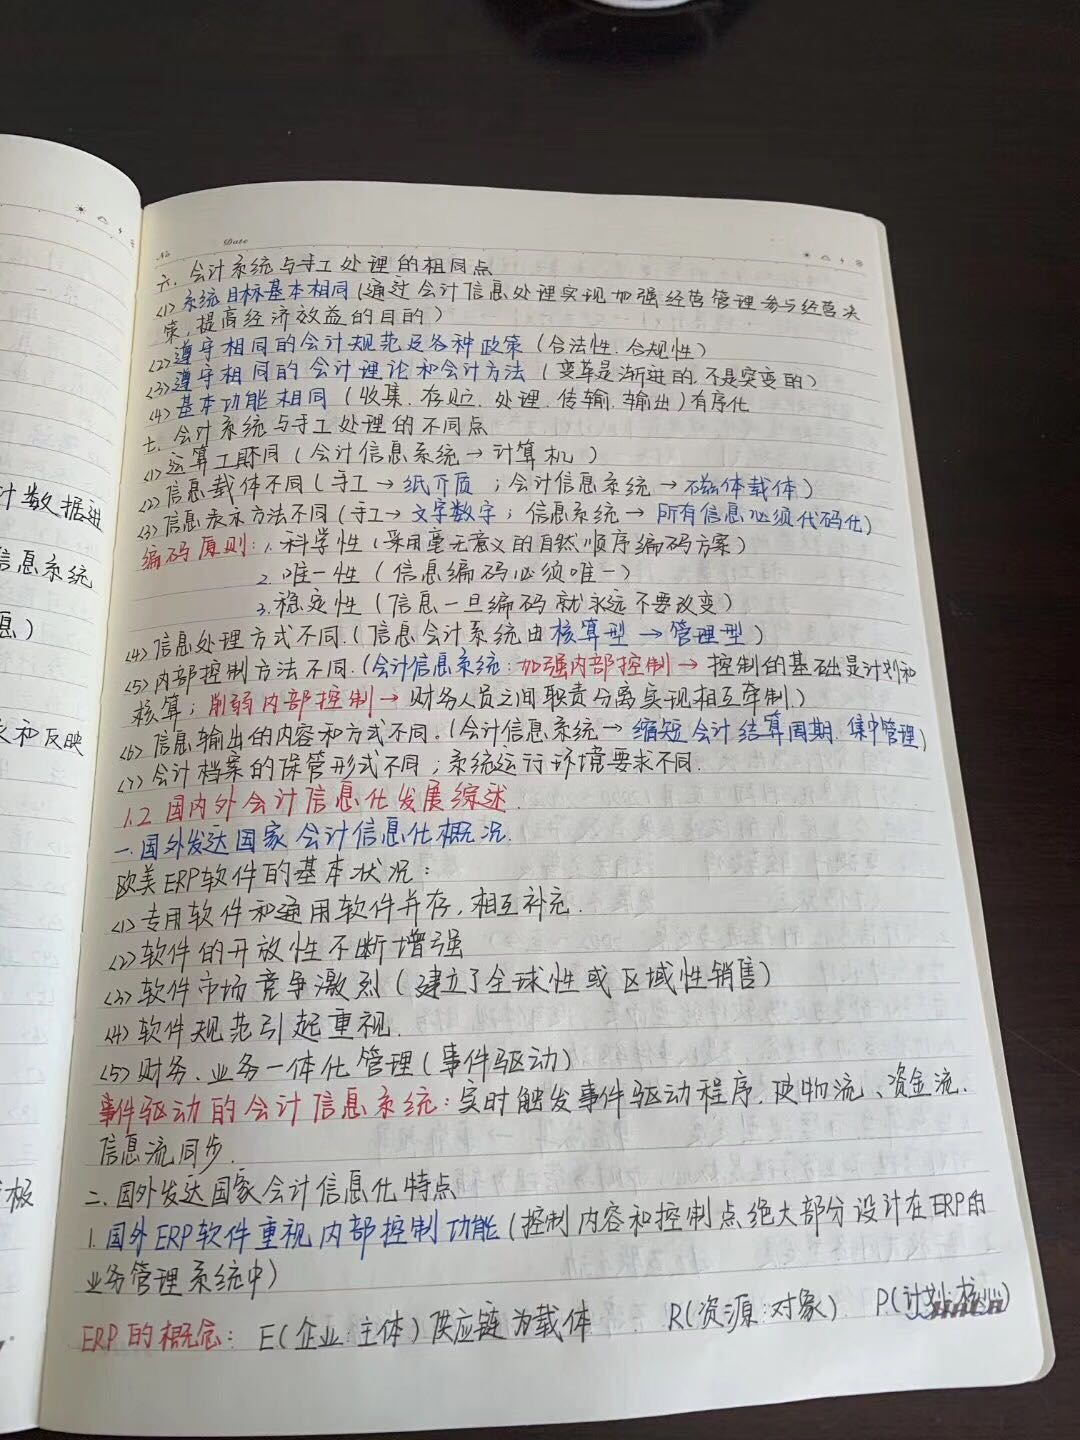 计数据进
信息系统
息)
和反映
板
No
Date
六. 会计系统与手工处理的相同点
<1>系统目标基本相同(通过会计信息处理实现加强经营管理参与经营决
策,提高经济效益的目的)
<2>遵守相同的会计规范及各种政策(合法性.合规性)
<3>遵守相同的会计理论和会计方法(变革是渐进的.不是突变的)
<4>基本功能相同(收集.存贮.处理.传输.输出)有序化
七. 会计系统与手工处理的不同点
<1>运算工具不同(会计信息系统→计算机)
<2>信息载体不同(手工→纸介质;会计信息系统→磁体载体)
<3>信息表示方法不同(手工→文字数字;信息系统→所有信息必须代码化)
编码原则:1.科学性(采用毫无意义的自然顺序编码方案)
2.唯一性(信息编码必须唯一)
3.稳定性(信息一旦编码就永远不要改变)
<4>信息处理方式不同.(信息会计系统由核算型→管理型)
<5>内部控制方法不同.(会计信息系统:加强内部控制→控制的基础是计划和
核算;削弱内部控制→财务人员之间职责分离实现相互牵制.)
<6>信息输出的内容和方式不同。(会计信息系统→缩短会计结算周期.集中管理)
<7>会计档案的保管形式不同;系统运行环境要求不同.
1.2 国内外会计信息化发展综述.
一.国外发达国家会计信息化概况.
欧美ERP软件的基本状况:
<1>专用软件和通用软件并存,相互补充.
<2>软件的开放性不断增强
<3>软件市场竞争激烈(建立了全球性或区域性销售)
<4>软件规范引起重视.
<5>财务、业务一体化管理(事件驱动)
事件驱动的会计信息系统:实时触发事件驱动程序.使物流、资金流.
信息流同步.
二.国外发达国家会计信息化特点
1.国外ERP软件重视内部控制功能(控制内容和控制点绝大部分设计在ERP的
业务管理系统中)
ERP的概念: E(企业:主体)供应链为载体. R(资源:对象). P(计划:核心)